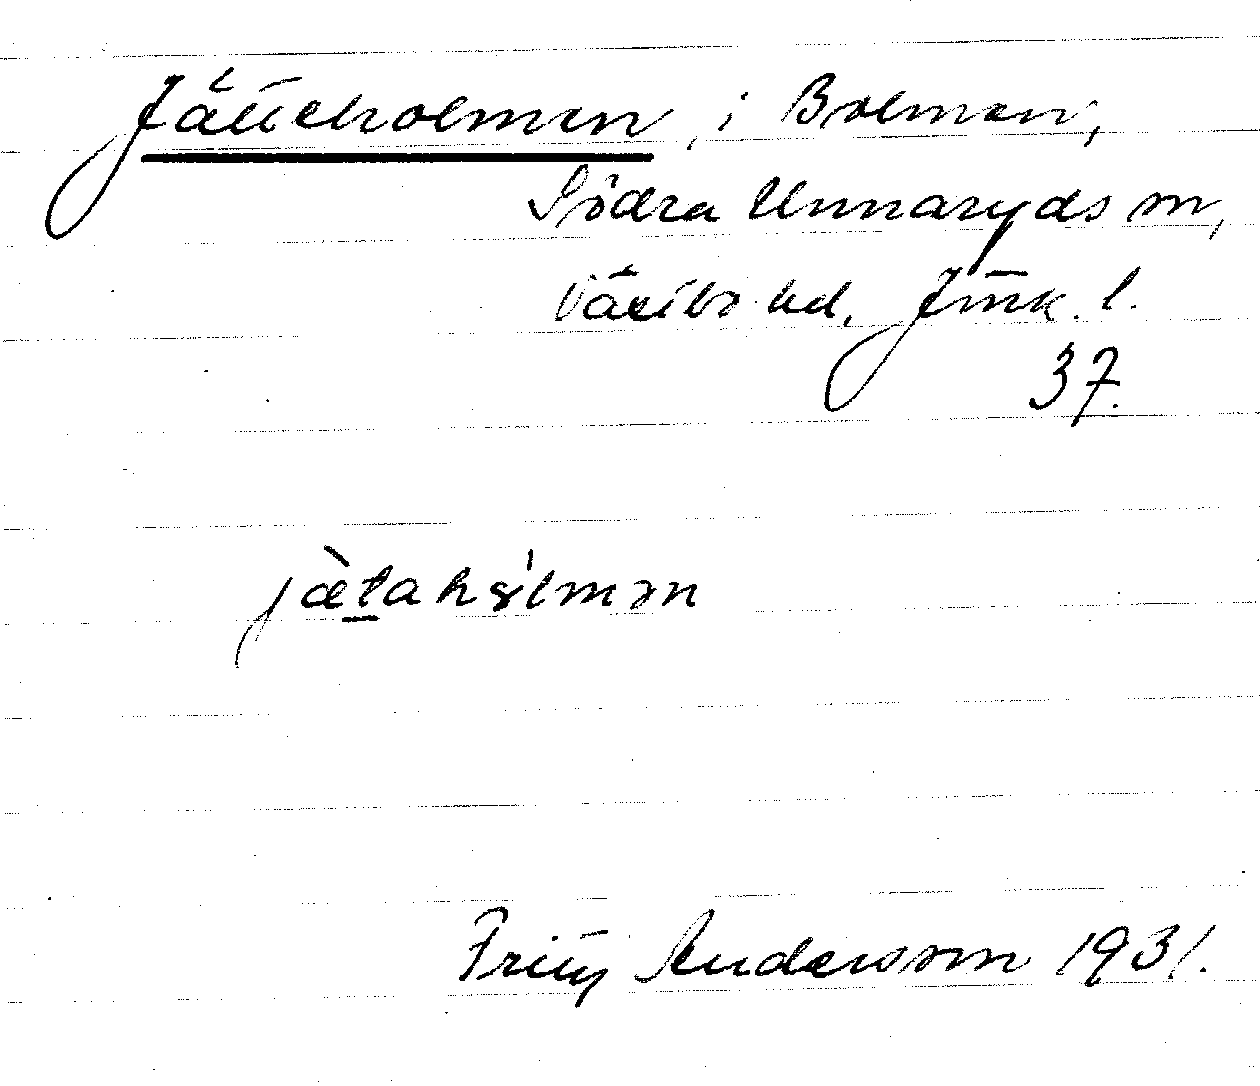 Jätteholmen, i Bolmen,
Södra Unnaryds sn,
Västbo hd. Jmk. l.
37.
jætahólmən
Fritz Andersson 1931.